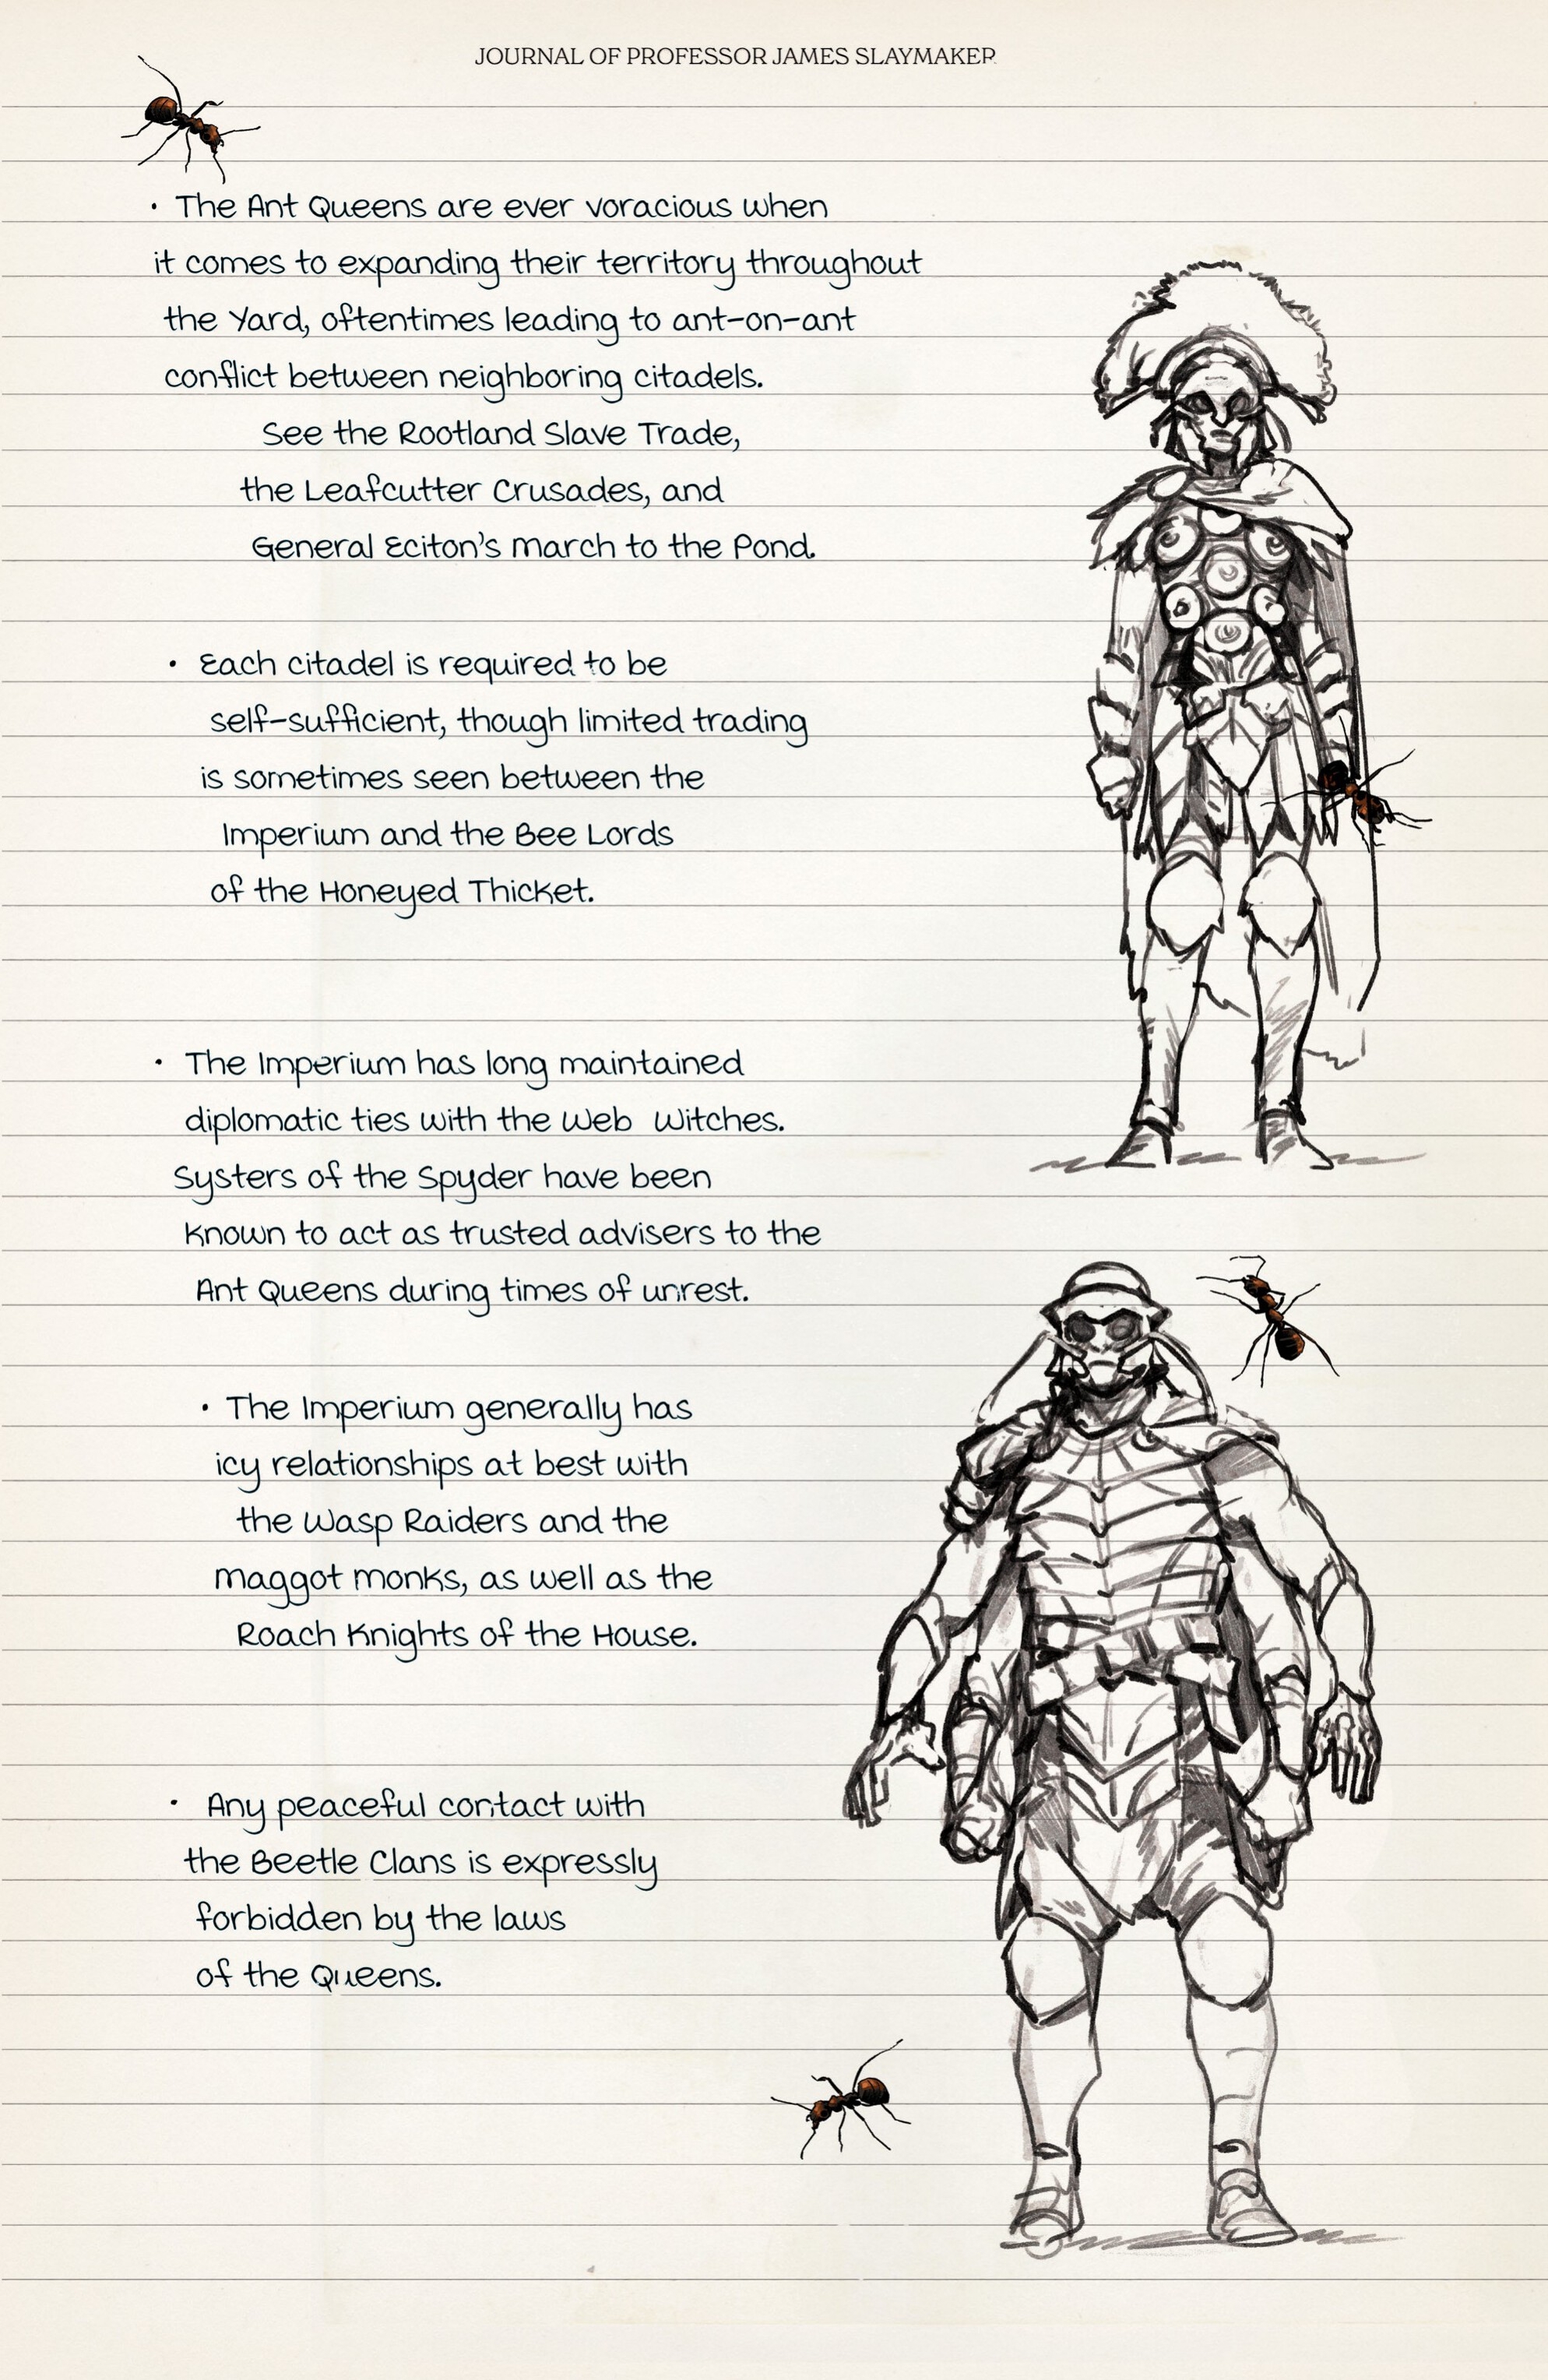 JOURNAL OF PROFESSOR JAMES SLAYMAKER
• The Ant Queens are ever voracious when
it comes to expanding their territory throughout
the Yard, oftentimes leading to ant-on-ant
conflict between neighboring citadels.
See the Rootland Slave Trade,
the Leafcutter Crusades, and
General Eciton's march to the Pond.
• Each citadel is required to be
self-sufficient, though limited trading
is sometimes seen between the
Imperium and the Bee Lords
of the Honeyed Thicket.
• The Imperium has long maintained
diplomatic ties with the Web Witches.
Systers of the Spyder have been
known to act as trusted advisers to the
Ant Queens during times of unrest.
• The Imperium generally has
icy relationships at best with
the Wasp Raiders and the
maggot monks, as well as the
Roach Knights of the House.
• Any peaceful contact with
the Beetle Clans is expressly
forbidden by the laws
of the Queens.